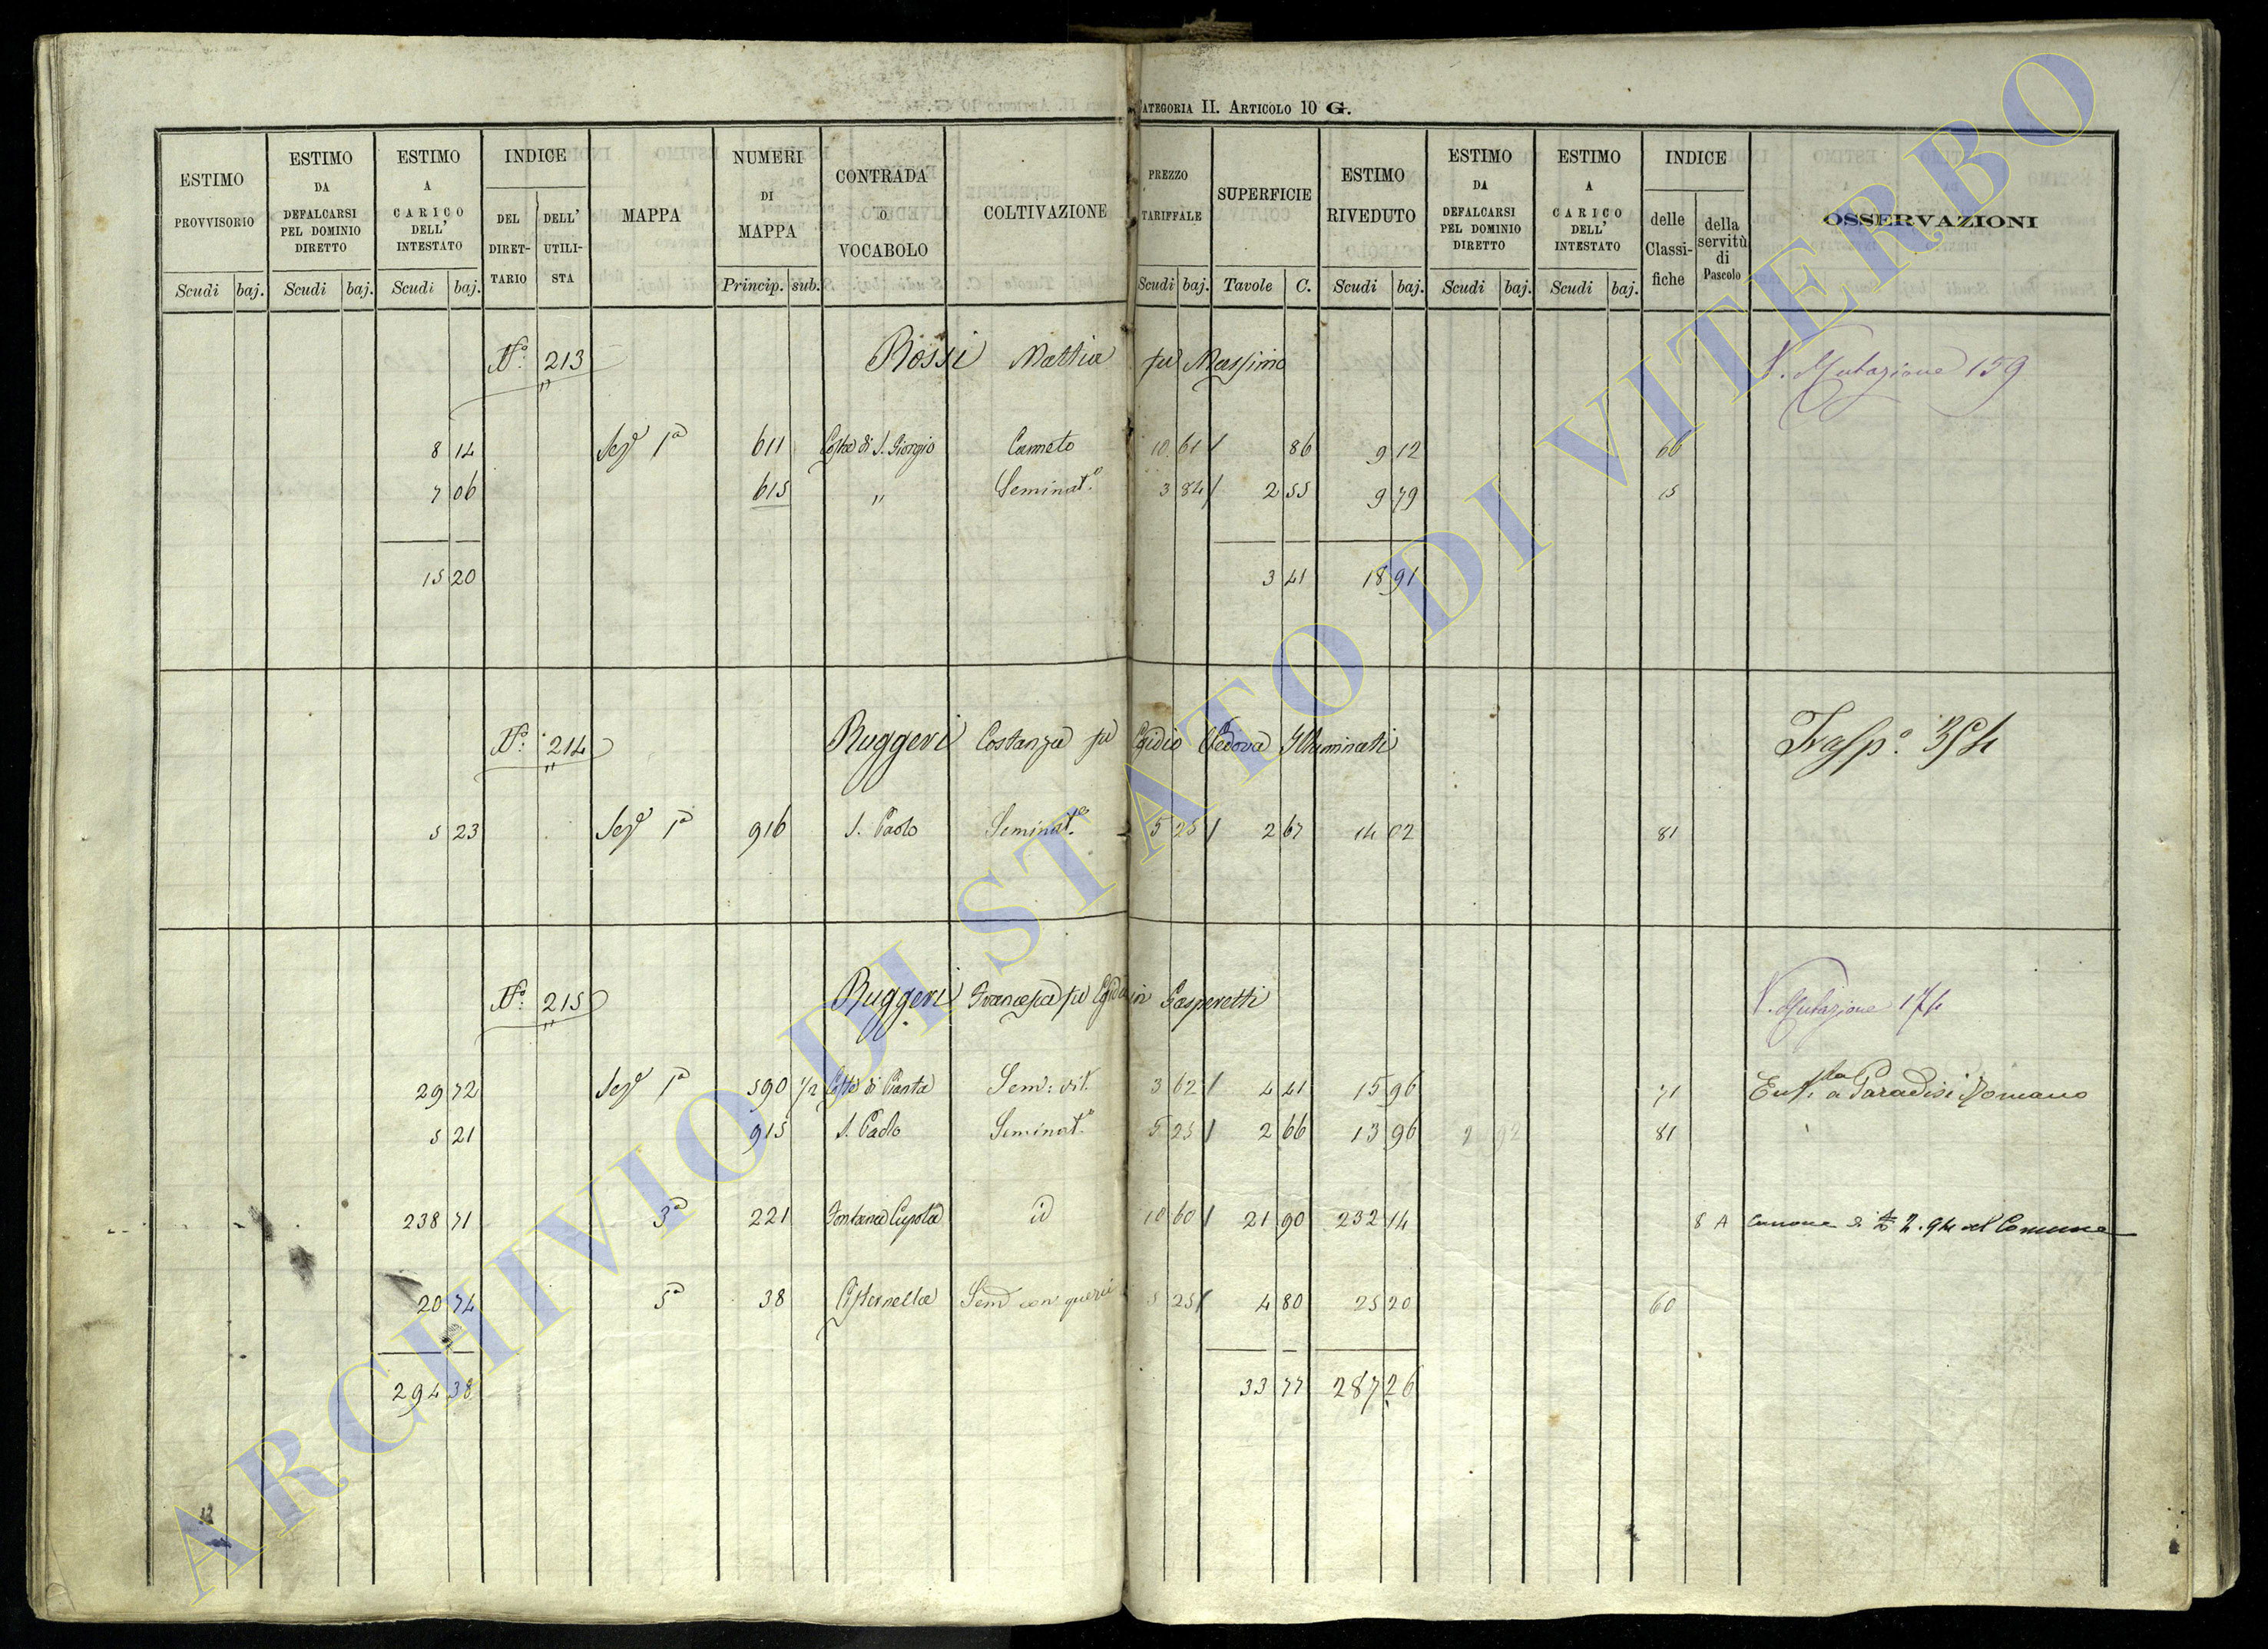 CATEGORIA II. ARTICOLO 10 G.
ESTIMO PROVVISORIO Scudi baj.
ESTIMO DA DEFALCARSI PEL DOMINIO DIRETTO Scudi baj.
ESTIMO A CARICO DELL' INTESTATO Scudi baj.
INDICE DEL DIRETTARIO DELL' UTILISTA
MAPPA
NUMERI DI MAPPA Princip. sub.
CONTRADA O VOCABOLO
COLTIVAZIONE
PREZZO TARIFFALE Scudi baj.
SUPERFICIE Tavole C.
ESTIMO RIVEDUTO Scudi baj.
ESTIMO DA DEFALCARSI PEL DOMINIO DIRETTO Scudi baj.
ESTIMO A CARICO DELL' INTESTATO Scudi baj.
INDICE delle Classifiche della servitù di Pascolo
OSSERVAZIONI
N.° 213 Rossi Mattia fu Massimo V. Mutazione 159
8 14 Sez.e 1a 611 Costa di S. Giorgio Canneto 10 61 / 86 9 12 66
7 06 615 " Seminat.o 3 84 / 2 55 9 79 15
15 20 3 41 18 91
N.° 214 Ruggeri Costanza fu Egidio Vedova Illuminati Trasp.o 354
5 23 Sez.e 1a 916 S. Paolo Seminat.o 5 25 / 2 67 14 02 81
N.° 215 Ruggeri Francesca fu Egidio in Gasperetti V. Mutazione 174
29 72 Sez.e 1a 590 1/2 Coste di Pianta Sem: vit. 3 62 / 4 41 15 96 71 Enf.ta a Paradisi Romano
5 21 915 S. Paolo Seminat.o 5 25 / 2 66 13 96 2 92 81
238 71 3a 221 Fontana Cupola id 10 60 / 21 90 232 14 8 A Canone di 2.94 al Comune
20 74 5a 38 Cisternella Sem con querci 5 25 / 4 80 25 20 60
294 38 33 77 287 26
ARCHIVIO DI STATO DI VITERBO